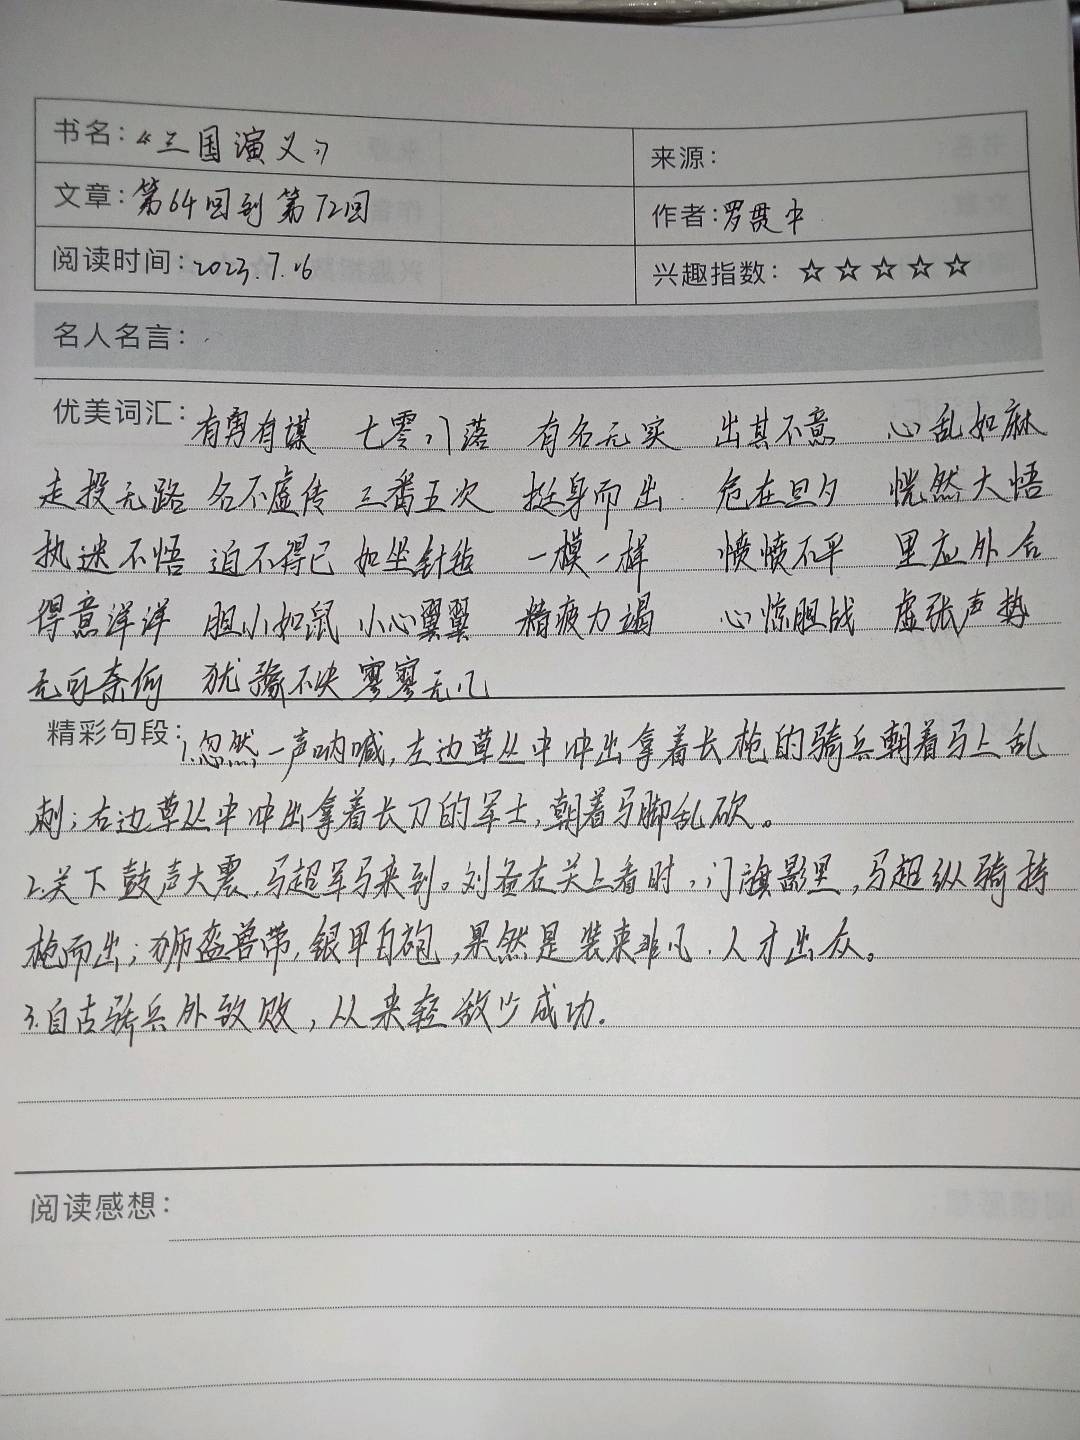 书名：《三国演义》
来源：
文章：第64回到第72回
作者：罗贯中
阅读时间：2023.7.16
兴趣指数：☆☆☆☆☆
名人名言：
优美词汇：有勇有谋 七零八落 有名无实 出其不意 心乱如麻
走投无路 名不虚传 三番五次 挺身而出 危在旦夕 恍然大悟
执迷不悟 迫不得已 如坐针毡 一模一样 愤愤不平 里应外合
得意洋洋 胆小如鼠 小心翼翼 精疲力竭 心惊胆战 虚张声势
无可奈何 犹豫不决 寥寥无几
精彩句段：1.忽然一声呐喊，左边草丛中冲出拿着长枪的骑兵朝着马上乱
刺；右边草丛中冲出拿着长刀的军士，朝着马脚乱砍。
2.关下鼓声大震，马超军马来到。刘备在关上看时，门旗影里，马超纵骑持
枪而出；狮盔兽带，银甲白袍，果然是装束非凡，人才出众。
3.自古骄兵多致败，从来轻敌少成功.
阅读感想：